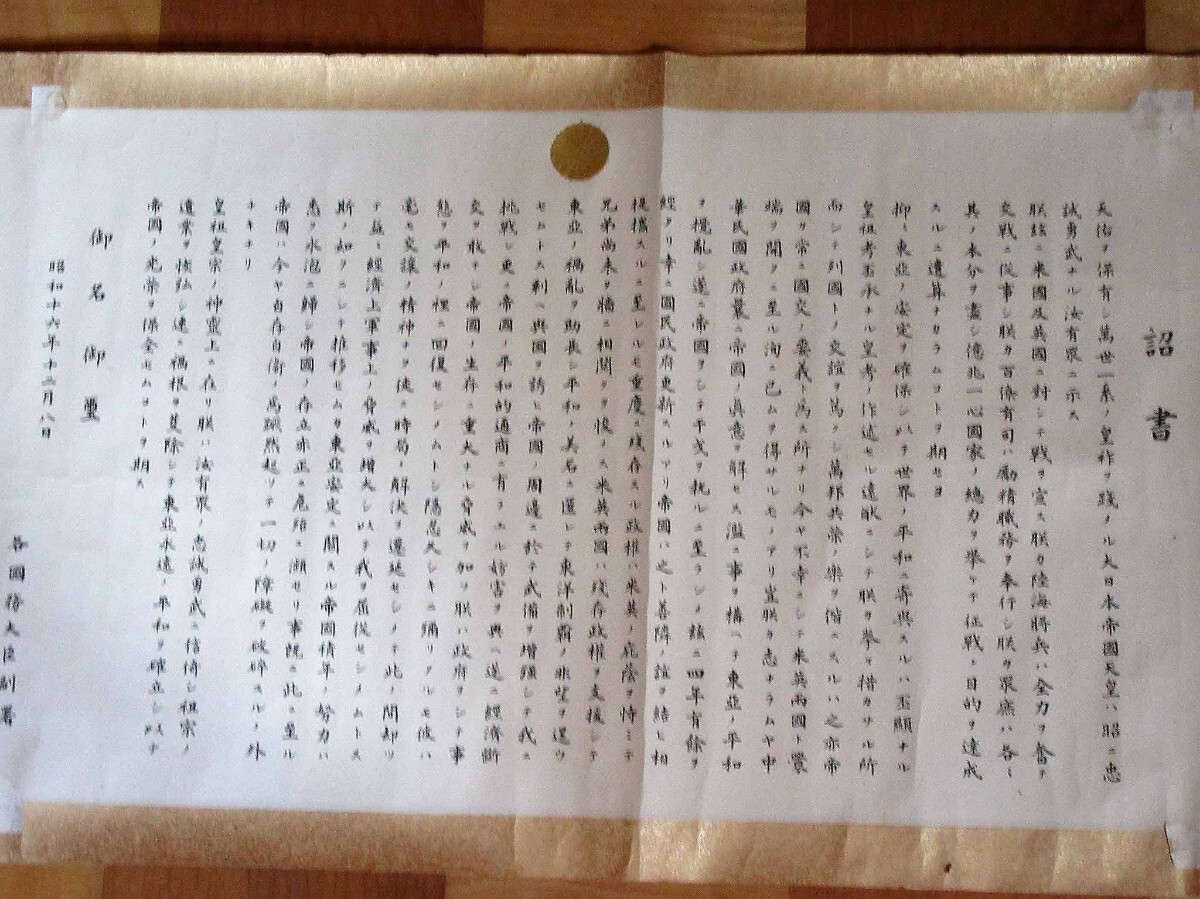 詔書
天佑ヲ保有シ萬世一系ノ皇祚ヲ踐メル大日本帝國天皇ハ昭ニ忠
誠勇武ナル汝有眾ニ示ス
朕茲ニ米國及英國ニ對シテ戰ヲ宣ス朕カ陸海將兵ハ全力ヲ奮テ
交戰ニ從事シ朕カ百僚有司ハ勵精職務ヲ奉行シ朕カ眾庶ハ各〻
其ノ本分ヲ盡シ億兆一心國家ノ總力ヲ擧ケテ征戰ノ目的ヲ達成
スルニ遺算ナカラムコトヲ期セヨ
抑〻東亞ノ安定ヲ確保シ以テ世界ノ平和ニ寄與スルハ丕顯ナル
皇祖考丕承ナル皇考ノ作述セル遠猷ニシテ朕カ拳々措カサル所
而シテ列國トノ交誼ヲ篤クシ萬邦共榮ノ樂ヲ偕ニスルハ之亦帝
國カ常ニ國交ノ要義ト爲ス所ナリ今ヤ不幸ニシテ米英兩國ト釁
端ヲ開クニ至ル洵ニ已ムヲ得サルモノアリ豈朕カ志ナラムヤ中
華民國政府曩ニ帝國ノ眞意ヲ解セス濫ニ事ヲ構ヘテ東亞ノ平和
ヲ攪亂シ遂ニ帝國ヲシテ干戈ヲ執ルニ至ラシメ茲ニ四年有餘ヲ
經タリ幸ニ國民政府更新スルアリ帝國ハ之ト善隣ノ誼ヲ結ヒ相
提攜スルニ至レルモ重慶ニ殘存スル政權ハ米英ノ庇蔭ヲ恃ミテ
兄弟尚未タ牆ニ相鬩クヲ悛メス米英兩國ハ殘存政權ヲ支援シテ
東亞ノ禍亂ヲ助長シ平和ノ美名ニ匿レテ東洋制覇ノ非望ヲ逞ウ
セムトス剩ヘ與國ヲ誘ヒ帝國ノ周邊ニ於テ武備ヲ增强シテ我ニ
挑戰シ更ニ帝國ノ平和的通商ニ有ラユル妨害ヲ與ヘ遂ニ經濟斷
交ヲ敢テシ帝國ノ生存ニ重大ナル脅威ヲ加フ朕ハ政府ヲシテ事
態ヲ平和ノ裡ニ囘復セシメムトシ隱忍久シキニ彌リタルモ彼ハ
毫モ交讓ノ精神ナク徒ニ時局ノ解決ヲ遷延セシメテ此ノ間却ツ
テ益〻經濟上軍事上ノ脅威ヲ增大シ以テ我ヲ屈從セシメムトス
斯ノ如クニシテ推移セムカ東亞安定ニ關スル帝國積年ノ努力ハ
悉ク水泡ニ歸シ帝國ノ存立亦正ニ危殆ニ瀕セリ事既ニ此ニ至ル
帝國ハ今ヤ自存自衞ノ爲蹶然起ツテ一切ノ障礙ヲ破碎スルノ外
ナキナリ
皇祖皇宗ノ神靈上ニ在リ朕ハ汝有眾ノ忠誠勇武ニ信倚シ祖宗ノ
遺業ヲ恢弘シ速ニ禍根ヲ芟除シテ東亞永遠ノ平和ヲ確立シ以テ
帝國ノ光榮ヲ保全セムコトヲ期ス
御名御璽
昭和十六年十二月八日
各國務大臣副署